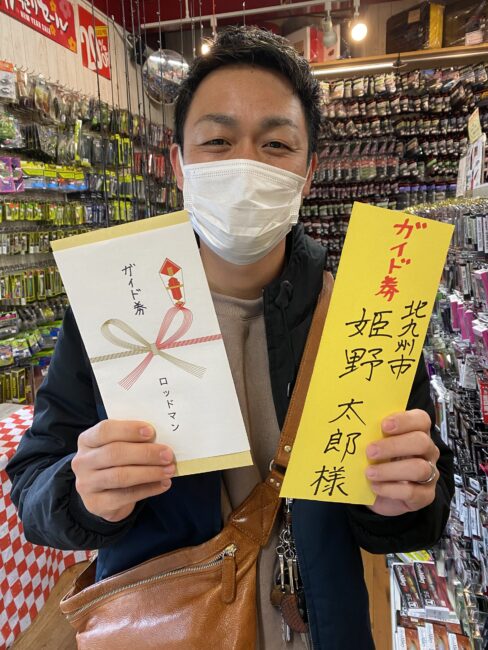 NEW YEAR SALE
ガイド券
ロッドマン
ガイド券
北九州市
姫野 太郎様